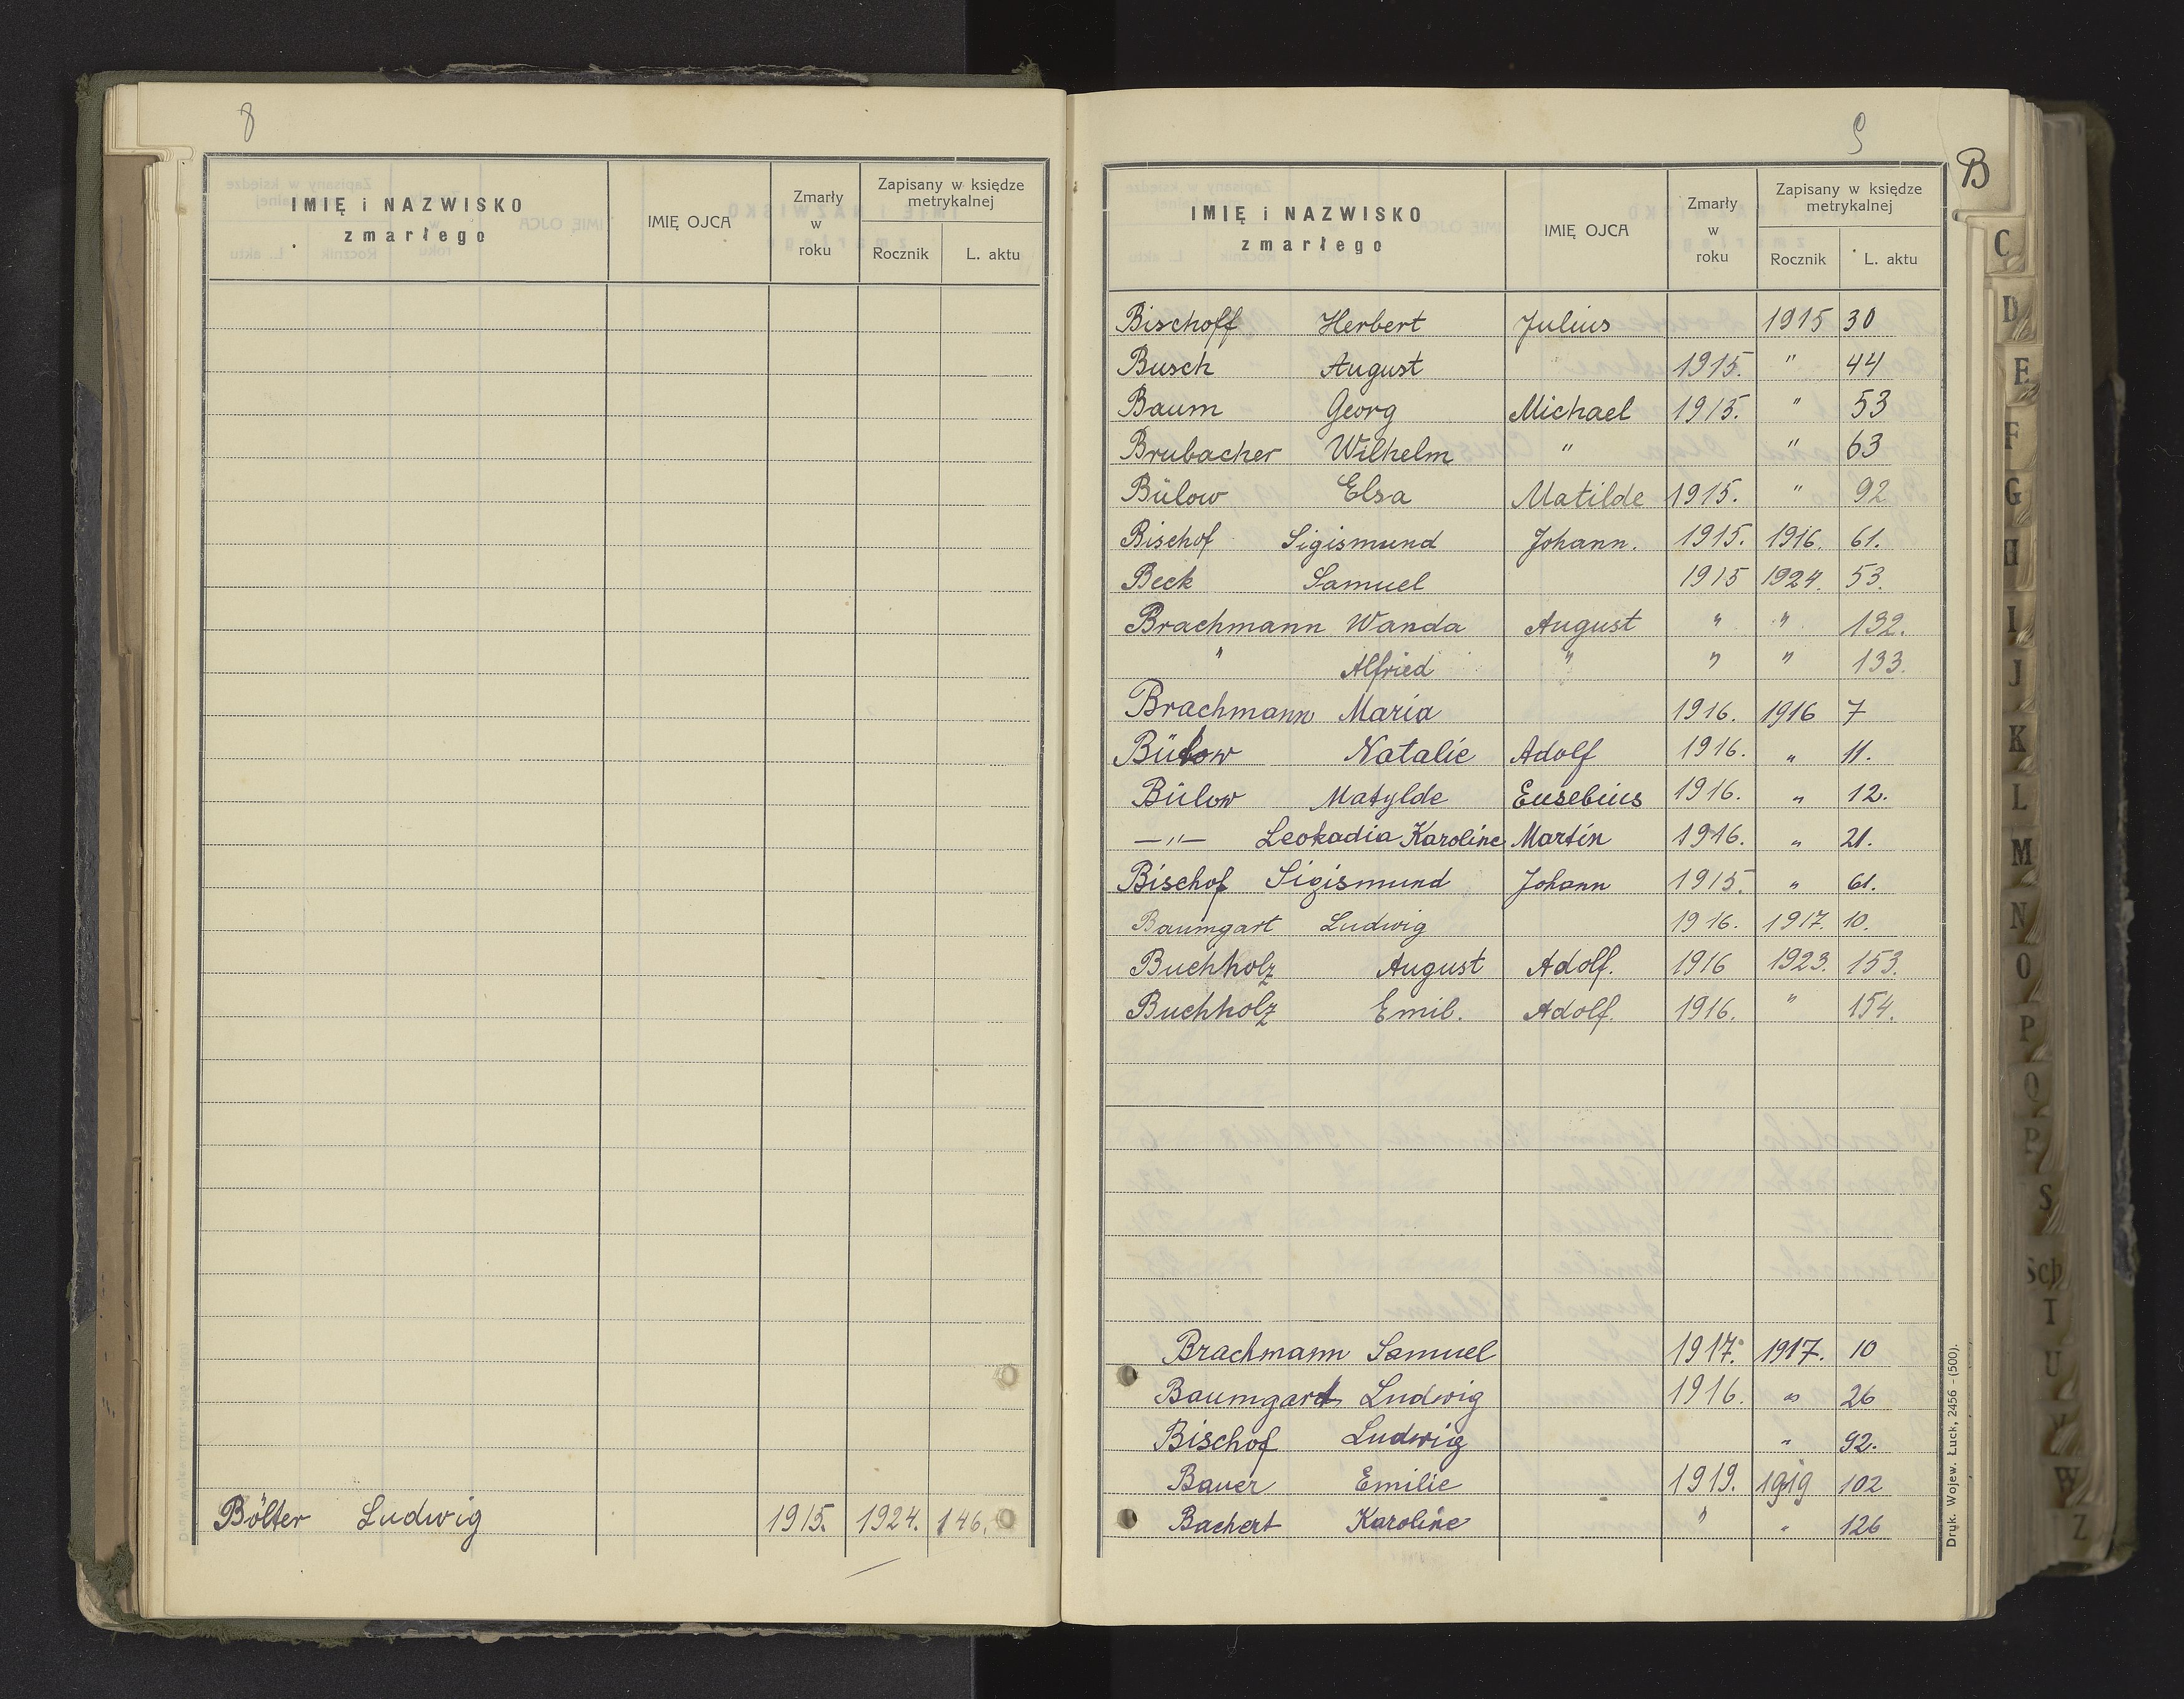 8
IMIĘ i NAZWISKO
zmarłego
IMIĘ OJCA
Zmarły
w
roku
Zapisany w księdze
metrykalnej
Rocznik
L. aktu
Bölter Ludwig 1915. 1924. 146.
9
B
IMIĘ i NAZWISKO
zmarłego
IMIĘ OJCA
Zmarły
w
roku
Zapisany w księdze
metrykalnej
Rocznik
L. aktu
Bischoff Herbert Julius 1915 30
Busch August 1915. " 44
Baum Georg Michael 1915. " 53
Brubacher Wilhelm " " 63
Bülow Elsa Matilde 1915. " 92
Bischof Sigismund Johann. 1915. 1916. 61.
Beck Samuel 1915 1924. 53.
Brachmann Wanda August " " 132.
" Alfried " " " 133.
Brachmann Maria 1916. 1916 7
Bülow Natalie Adolf 1916. " 11.
Bülow Matylde Eusebius 1916. " 12.
—"— Leokadia Karoline Martin 1916. " 21.
Bischof Sigismund Johann 1915. " 61.
Baumgart Ludwig 1916. 1917. 10.
Buchholz August Adolf. 1916 1923. 153.
Buchholz Emil. Adolf. 1916. " 154.
Brachmann Samuel 1917. 1917. 10
Baumgardt Ludwig 1916. " 26
Bischof Ludwig " 92.
Bauer Emilie 1919. 1919 102
Bachert Karoline " " 126
Druk. Wojew. Łuck, 2456 - (500).
C
D
E
F
G
H
I
J
K
L
M
N
O
P
Q
S
Sch
T
U
W
Z